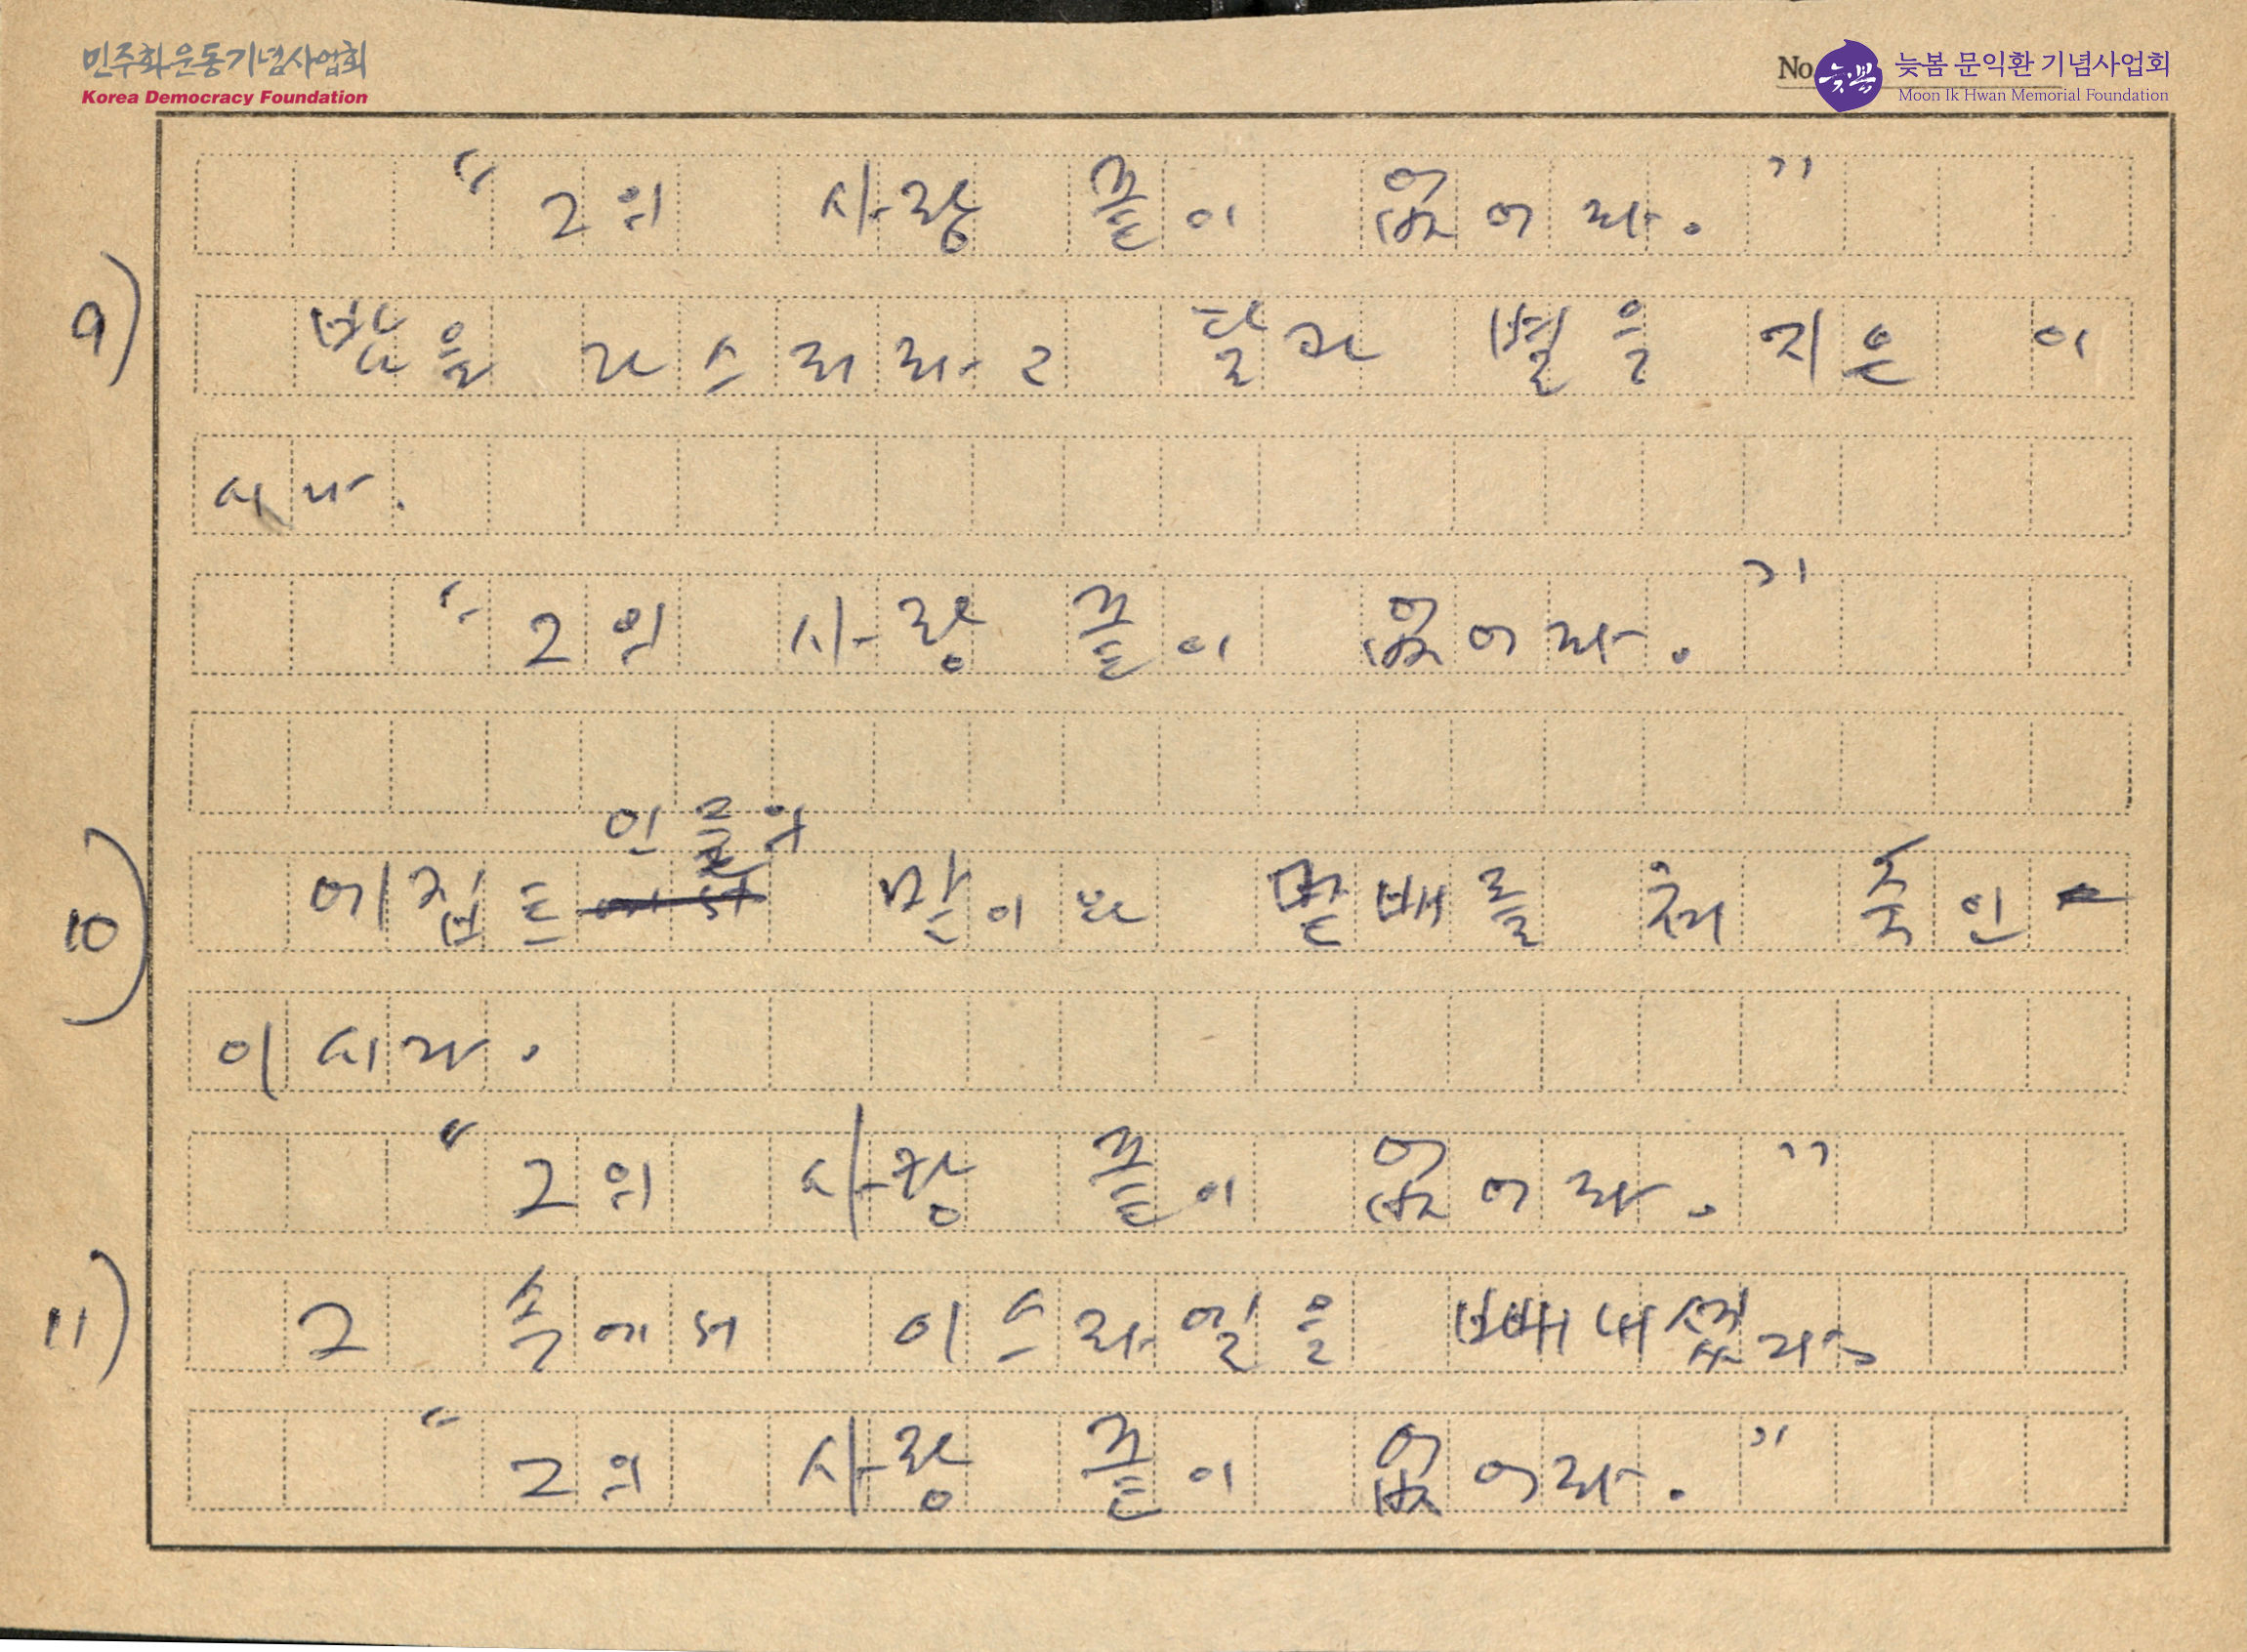 민주화운동기념사업회
Korea Democracy Foundation
No
늦봄 문익환 기념사업회
Moon Ik Hwan Memorial Foundation
"그의 사랑 끝이 없어라."
9) 밤을 다스리라고 달과 별을 지은 이
시다.
"그의 사랑 끝이 없어라."
인들의
10) 에집트에서 맏이와 맏배를 쳐 죽인
이시다.
"그의 사랑 끝이 없어라."
11) 그 속에서 이스라엘을 빼내셨다.
"그의 사랑 끝이 없어라."